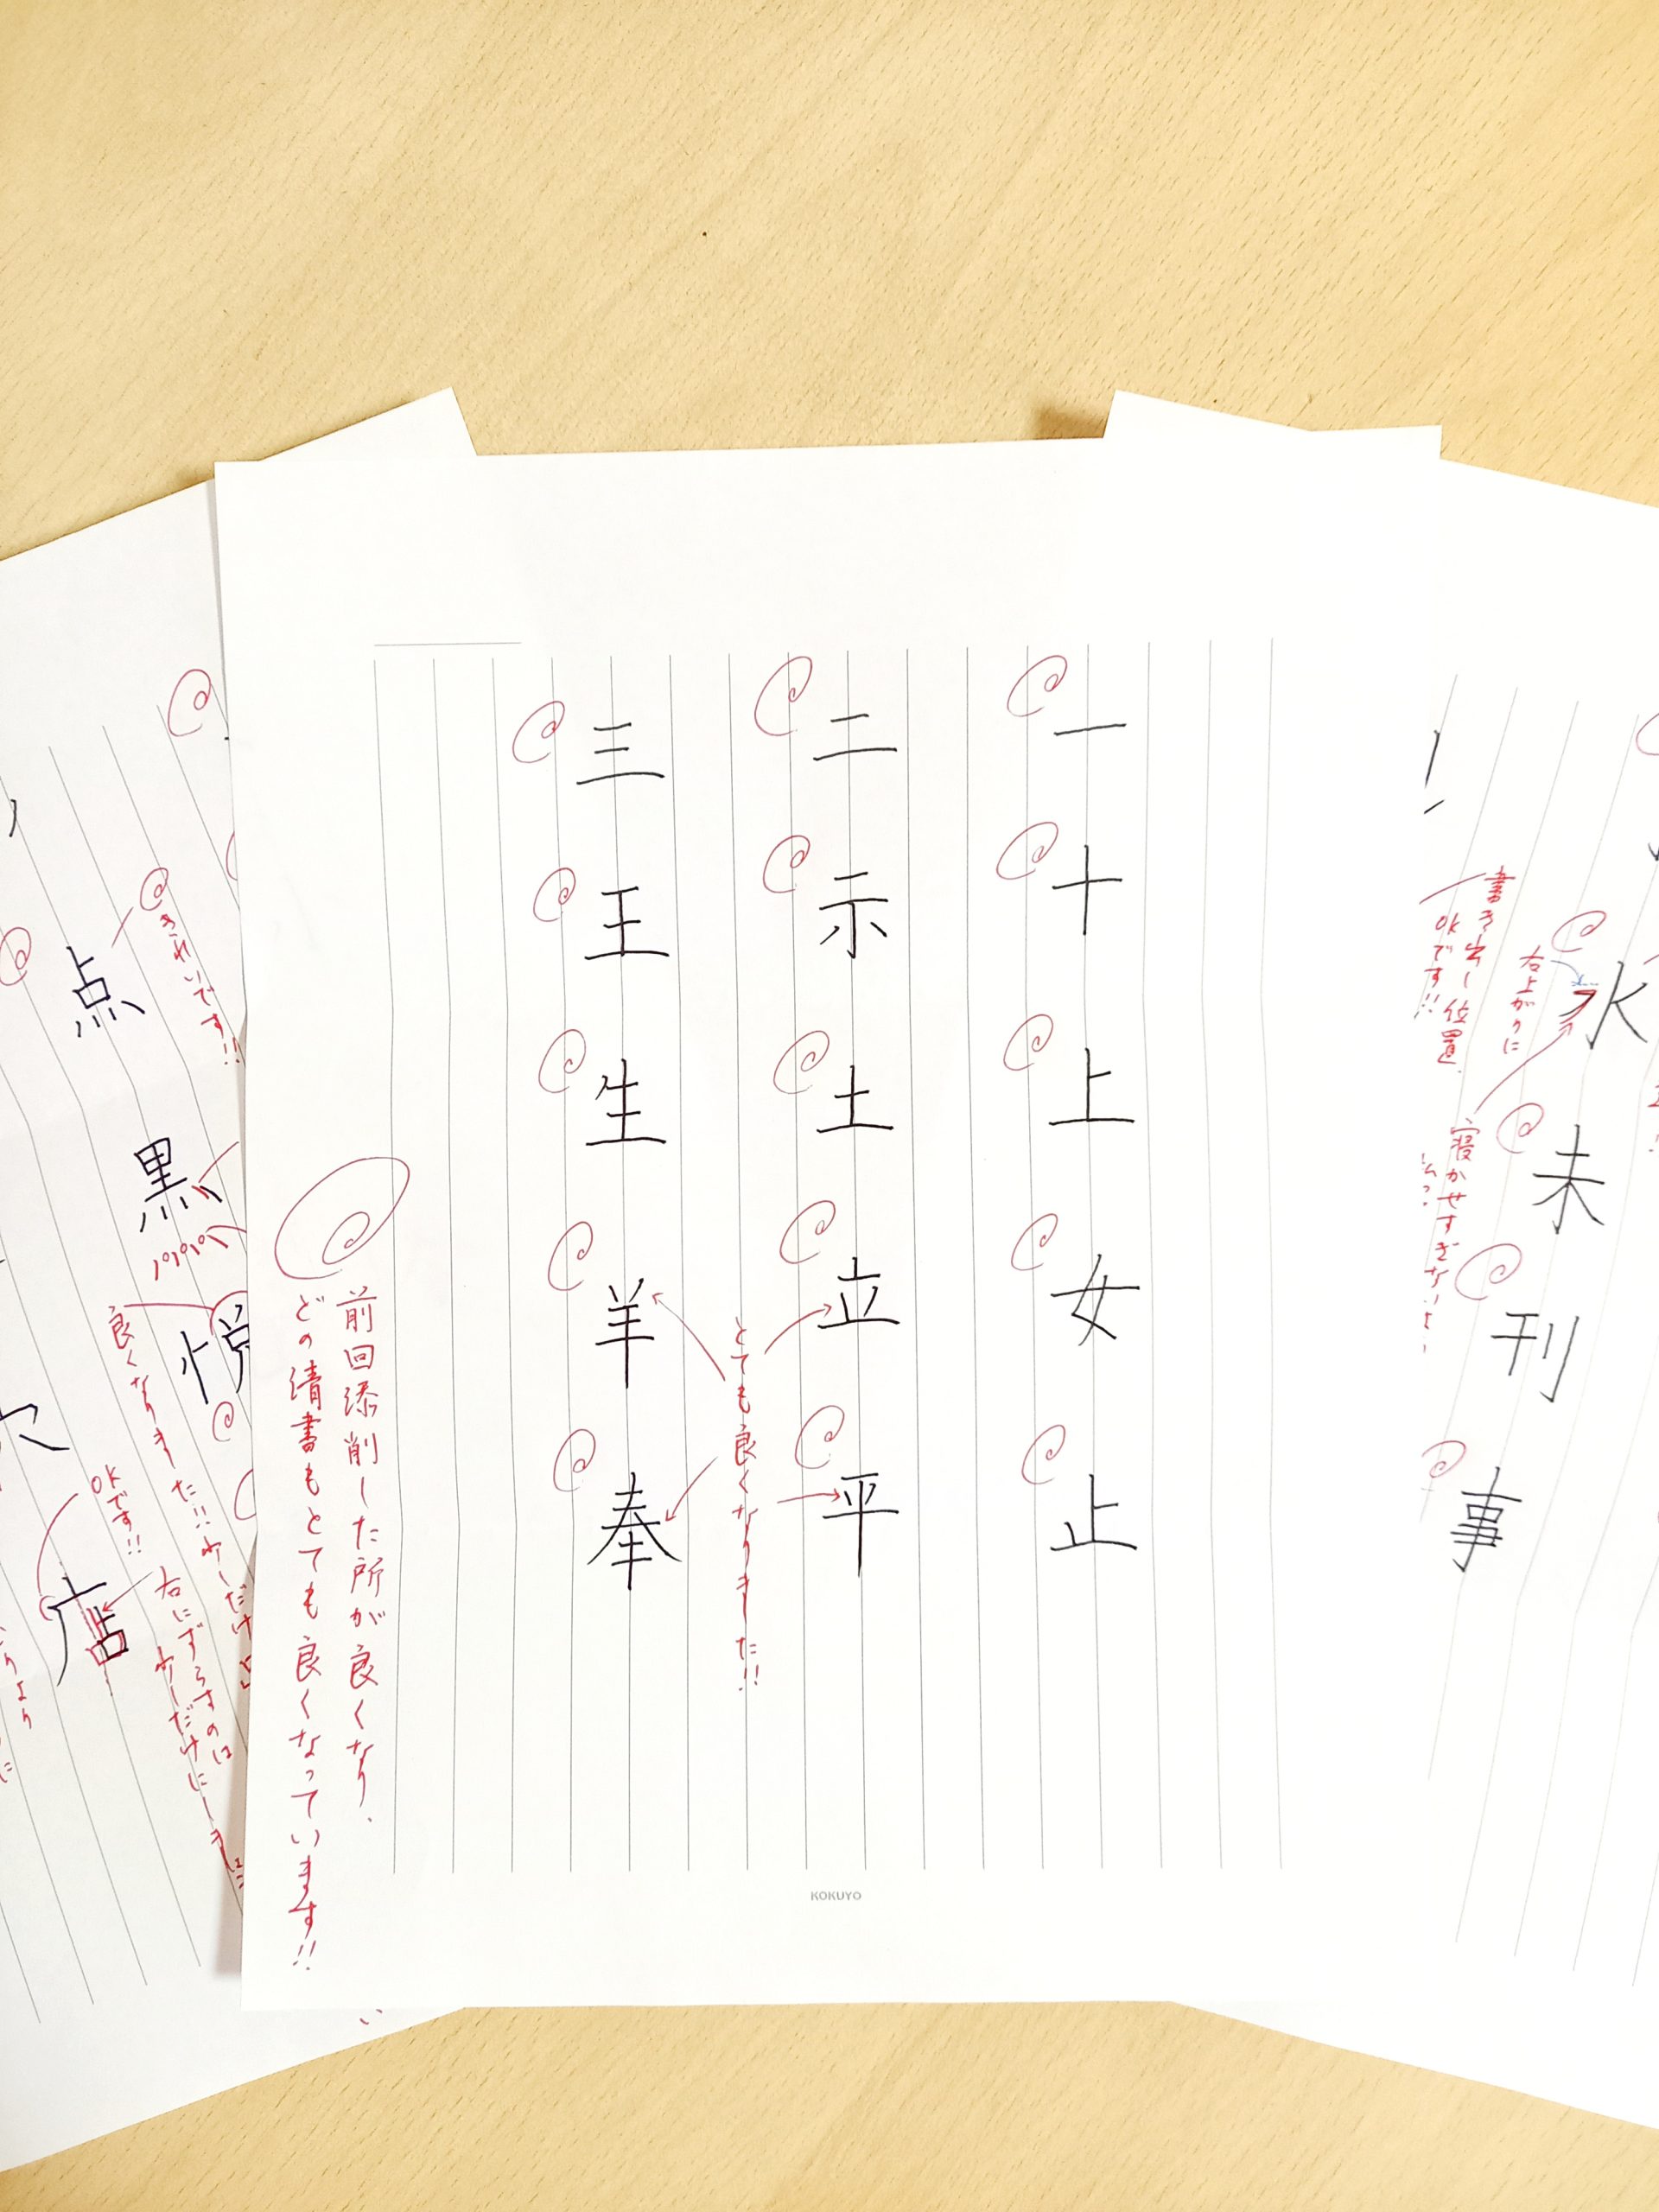 一十上女止
二示土立平
とても良くなりました!!
三王生羊奉
前回添削した所が良くなり、
どの清書もとても良くなっています!!
KOKUYO
水未刊事
右上がりに
書き出し位置
OKです!!
寝かせすぎないよう
きれいです!!
点黒悦店
良くなりました!!
OKです!!
右にずらすのは
少しだけにしましょう